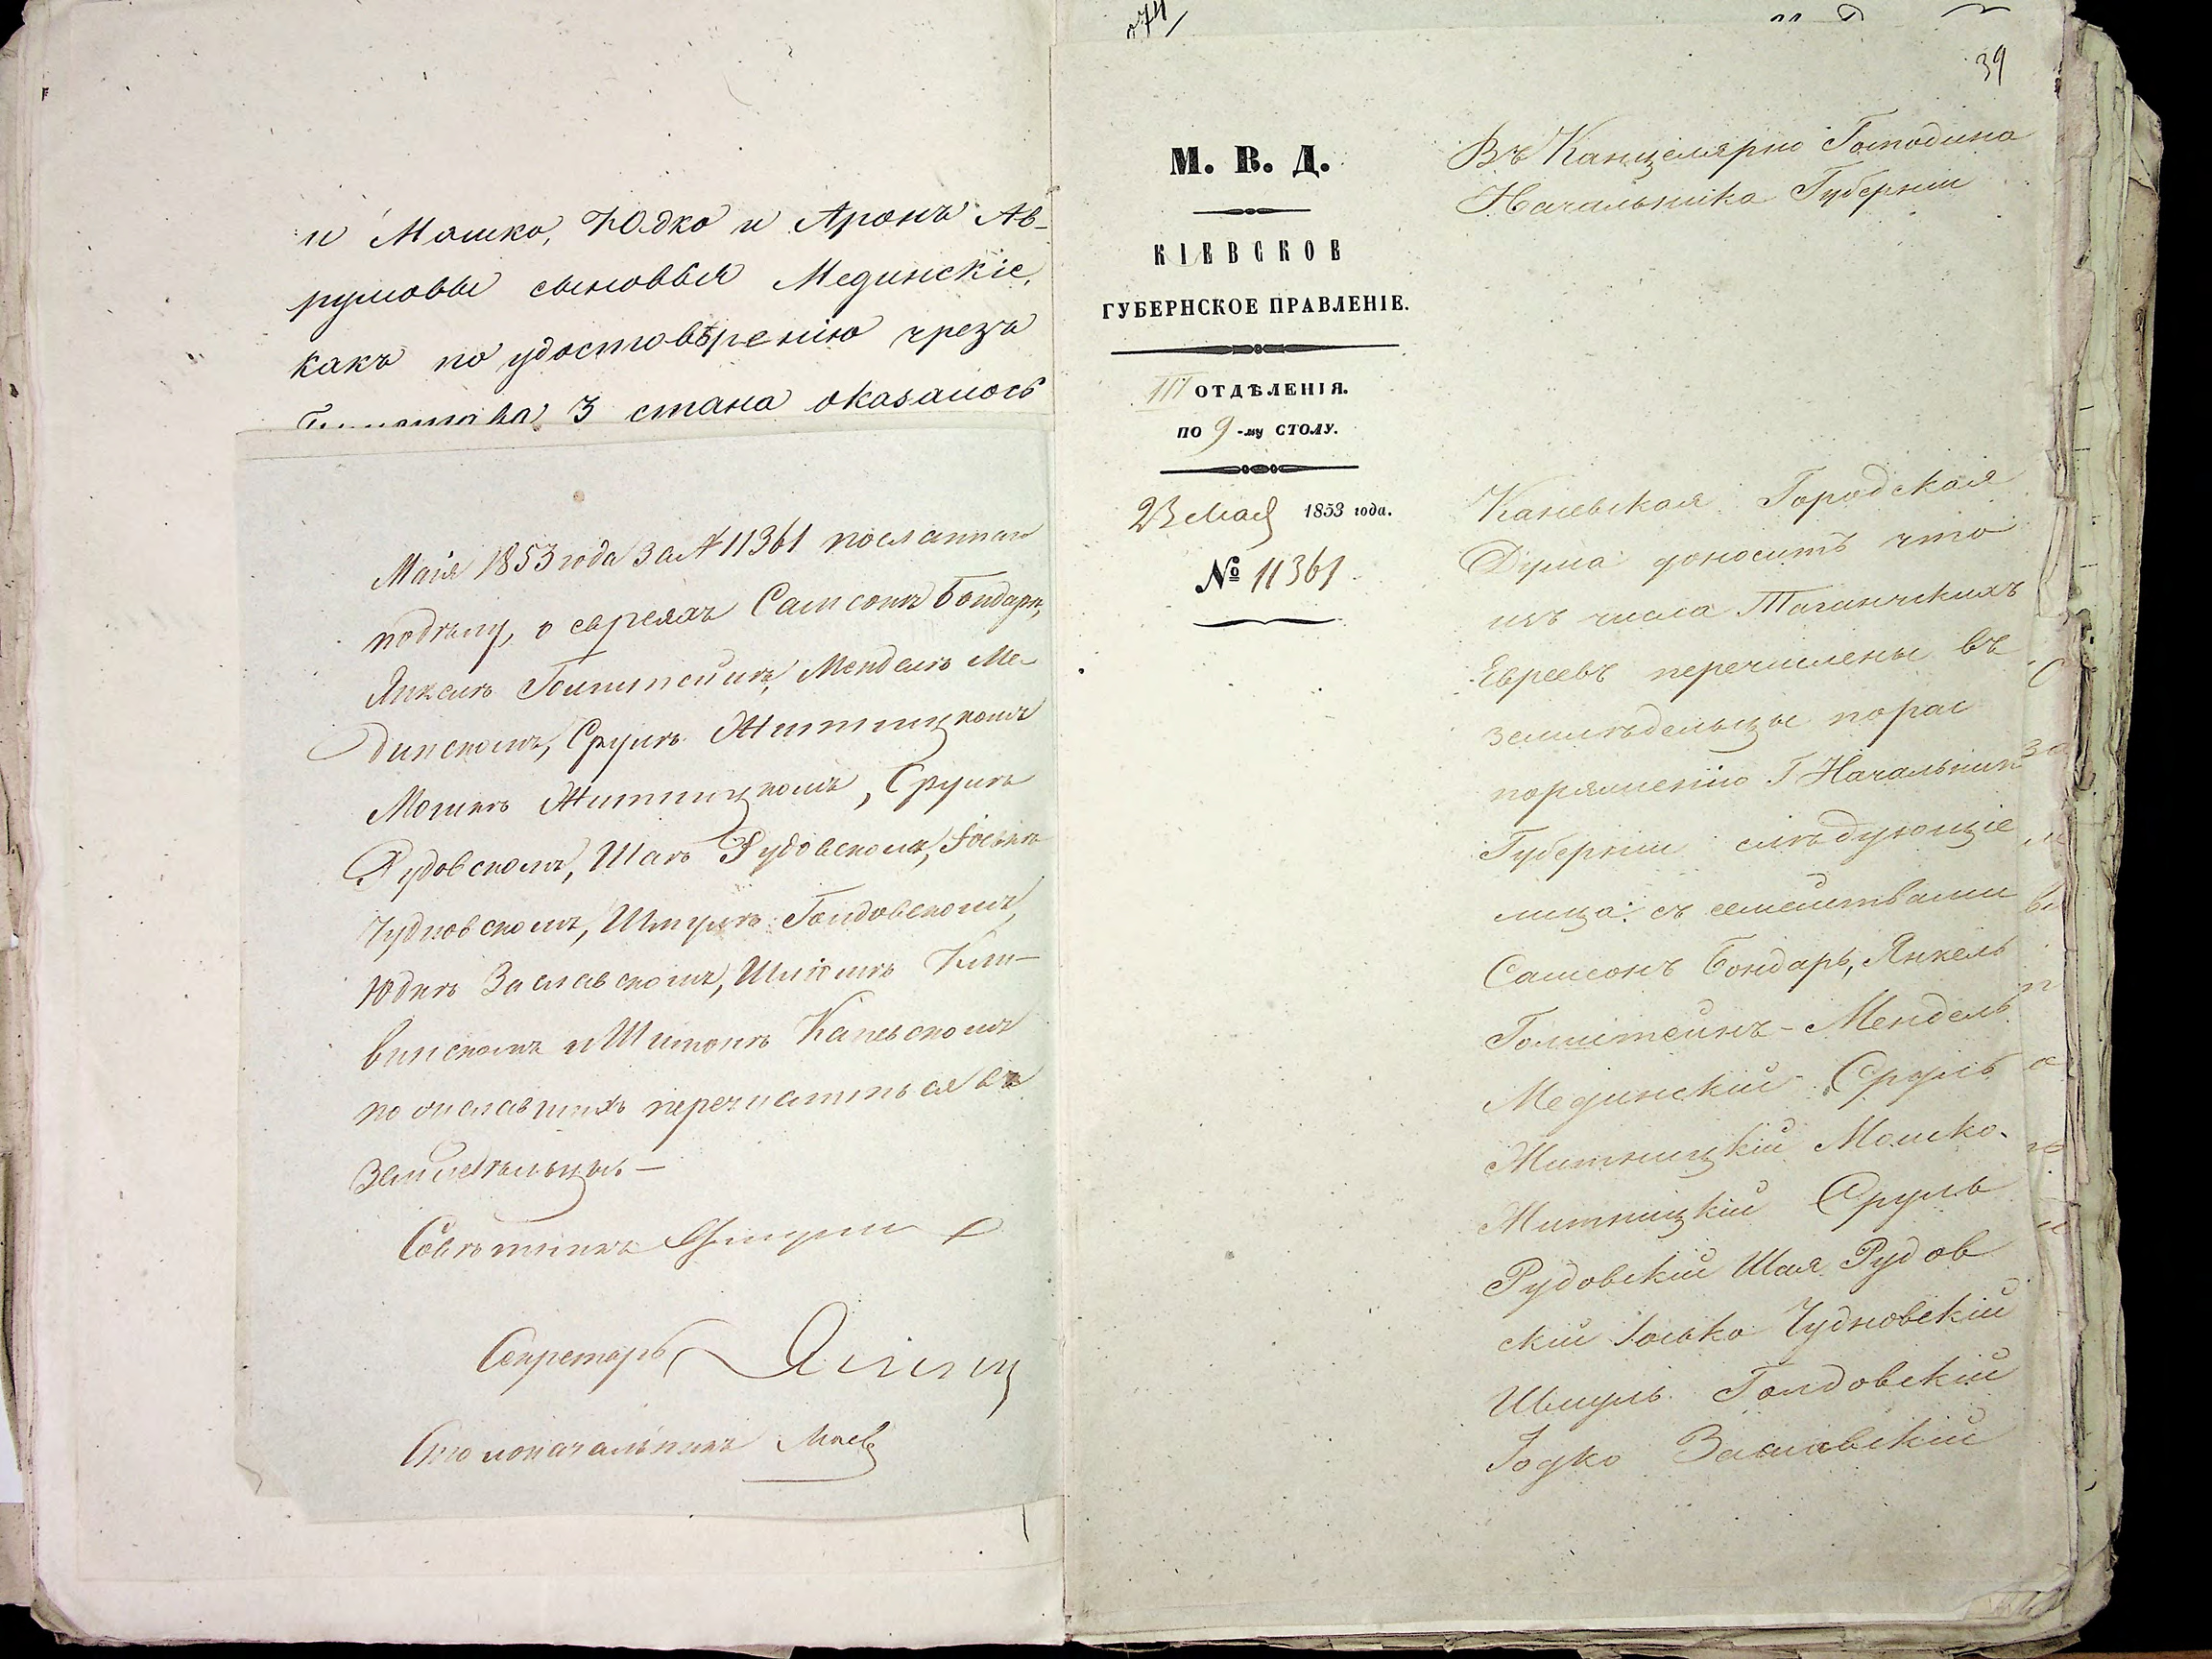 и Мошко, Юдко и Аронъ Ав-
румовы сыновья Мединскіе,
какъ по удостовѣренію чрезъ
3 стана оказалось
Маія 1853 года за № 11361 посланная
о евреяхъ Самсонѣ Бондарѣ,
Янкелѣ Голштейнѣ, Менделѣ Ме-
динскомъ, Срулѣ Житницкомъ
Мошкѣ Житницкомъ, Срулѣ
Рудовскомъ, Шаѣ Рудовскомъ, Іоськѣ
Чудновскомъ, Шмулѣ Голдовскомъ,
Юдкѣ Заславскомъ, Шліомѣ
и Шимонѣ Каневскомъ
перечислиться въ
земледѣльцы.—
Совѣтникъ
Секретарь
Столоначальникъ
39
М. В. Д.
КІЕВСКОЕ
ГУБЕРНСКОЕ ПРАВЛЕНІЕ.
III ОТДѢЛЕНІЯ.
ПО 9-му СТОЛУ.
23 Мая 1853 года.
№ 11361
Въ Канцелярію Господина
Начальника Губерніи
Каневская Городская
Дума доноситъ что
изъ числа Таганчскихъ
Евреевъ перечислены въ
земледѣльцы по рас
поряженію Г Начальник
Губерніи слѣдующіе
лица: съ семействами
Самсонъ Бондарь, Янкель
Голштейнъ - Мендель
Мединскій Сруль
Житницкій Мошко
Житницкій Сруль
Рудовскій Шая Рудов
скій Іосько Чудновскій
Шмуль Голдовскій
Іодко Заславскій